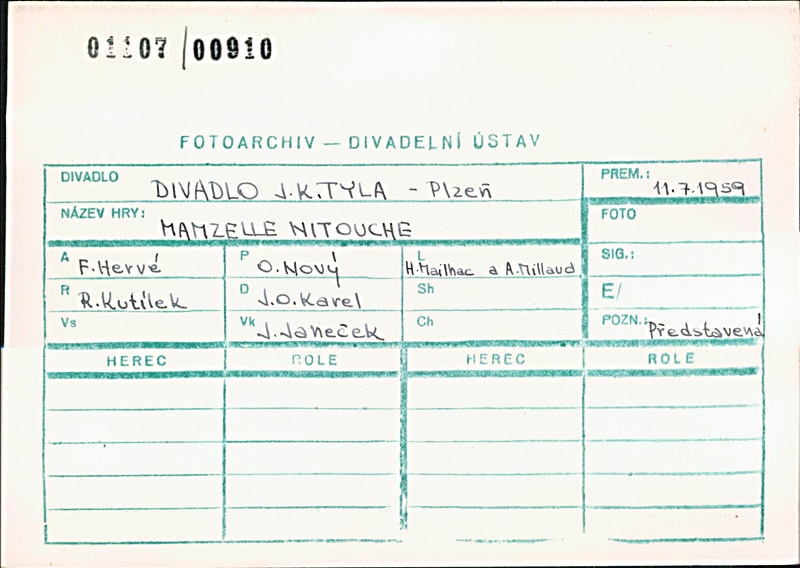 01107/00910
FOTOARCHIV — DIVADELNÍ ÚSTAV
DIVADLO DIVADLO J.K.TYLA - Plzeň
PREM.: 11.7.1959
NÁZEV HRY: MAMZELLE NITOUCHE
FOTO
A F.Hervé P O.Nový L H.Mailhac a A.Millaud
SIG.:
R R.Kutílek D J.O.Karel Sh
E/
Vs Vk J.Janeček Ch
POZN.: Představená
HEREC ROLE HEREC ROLE